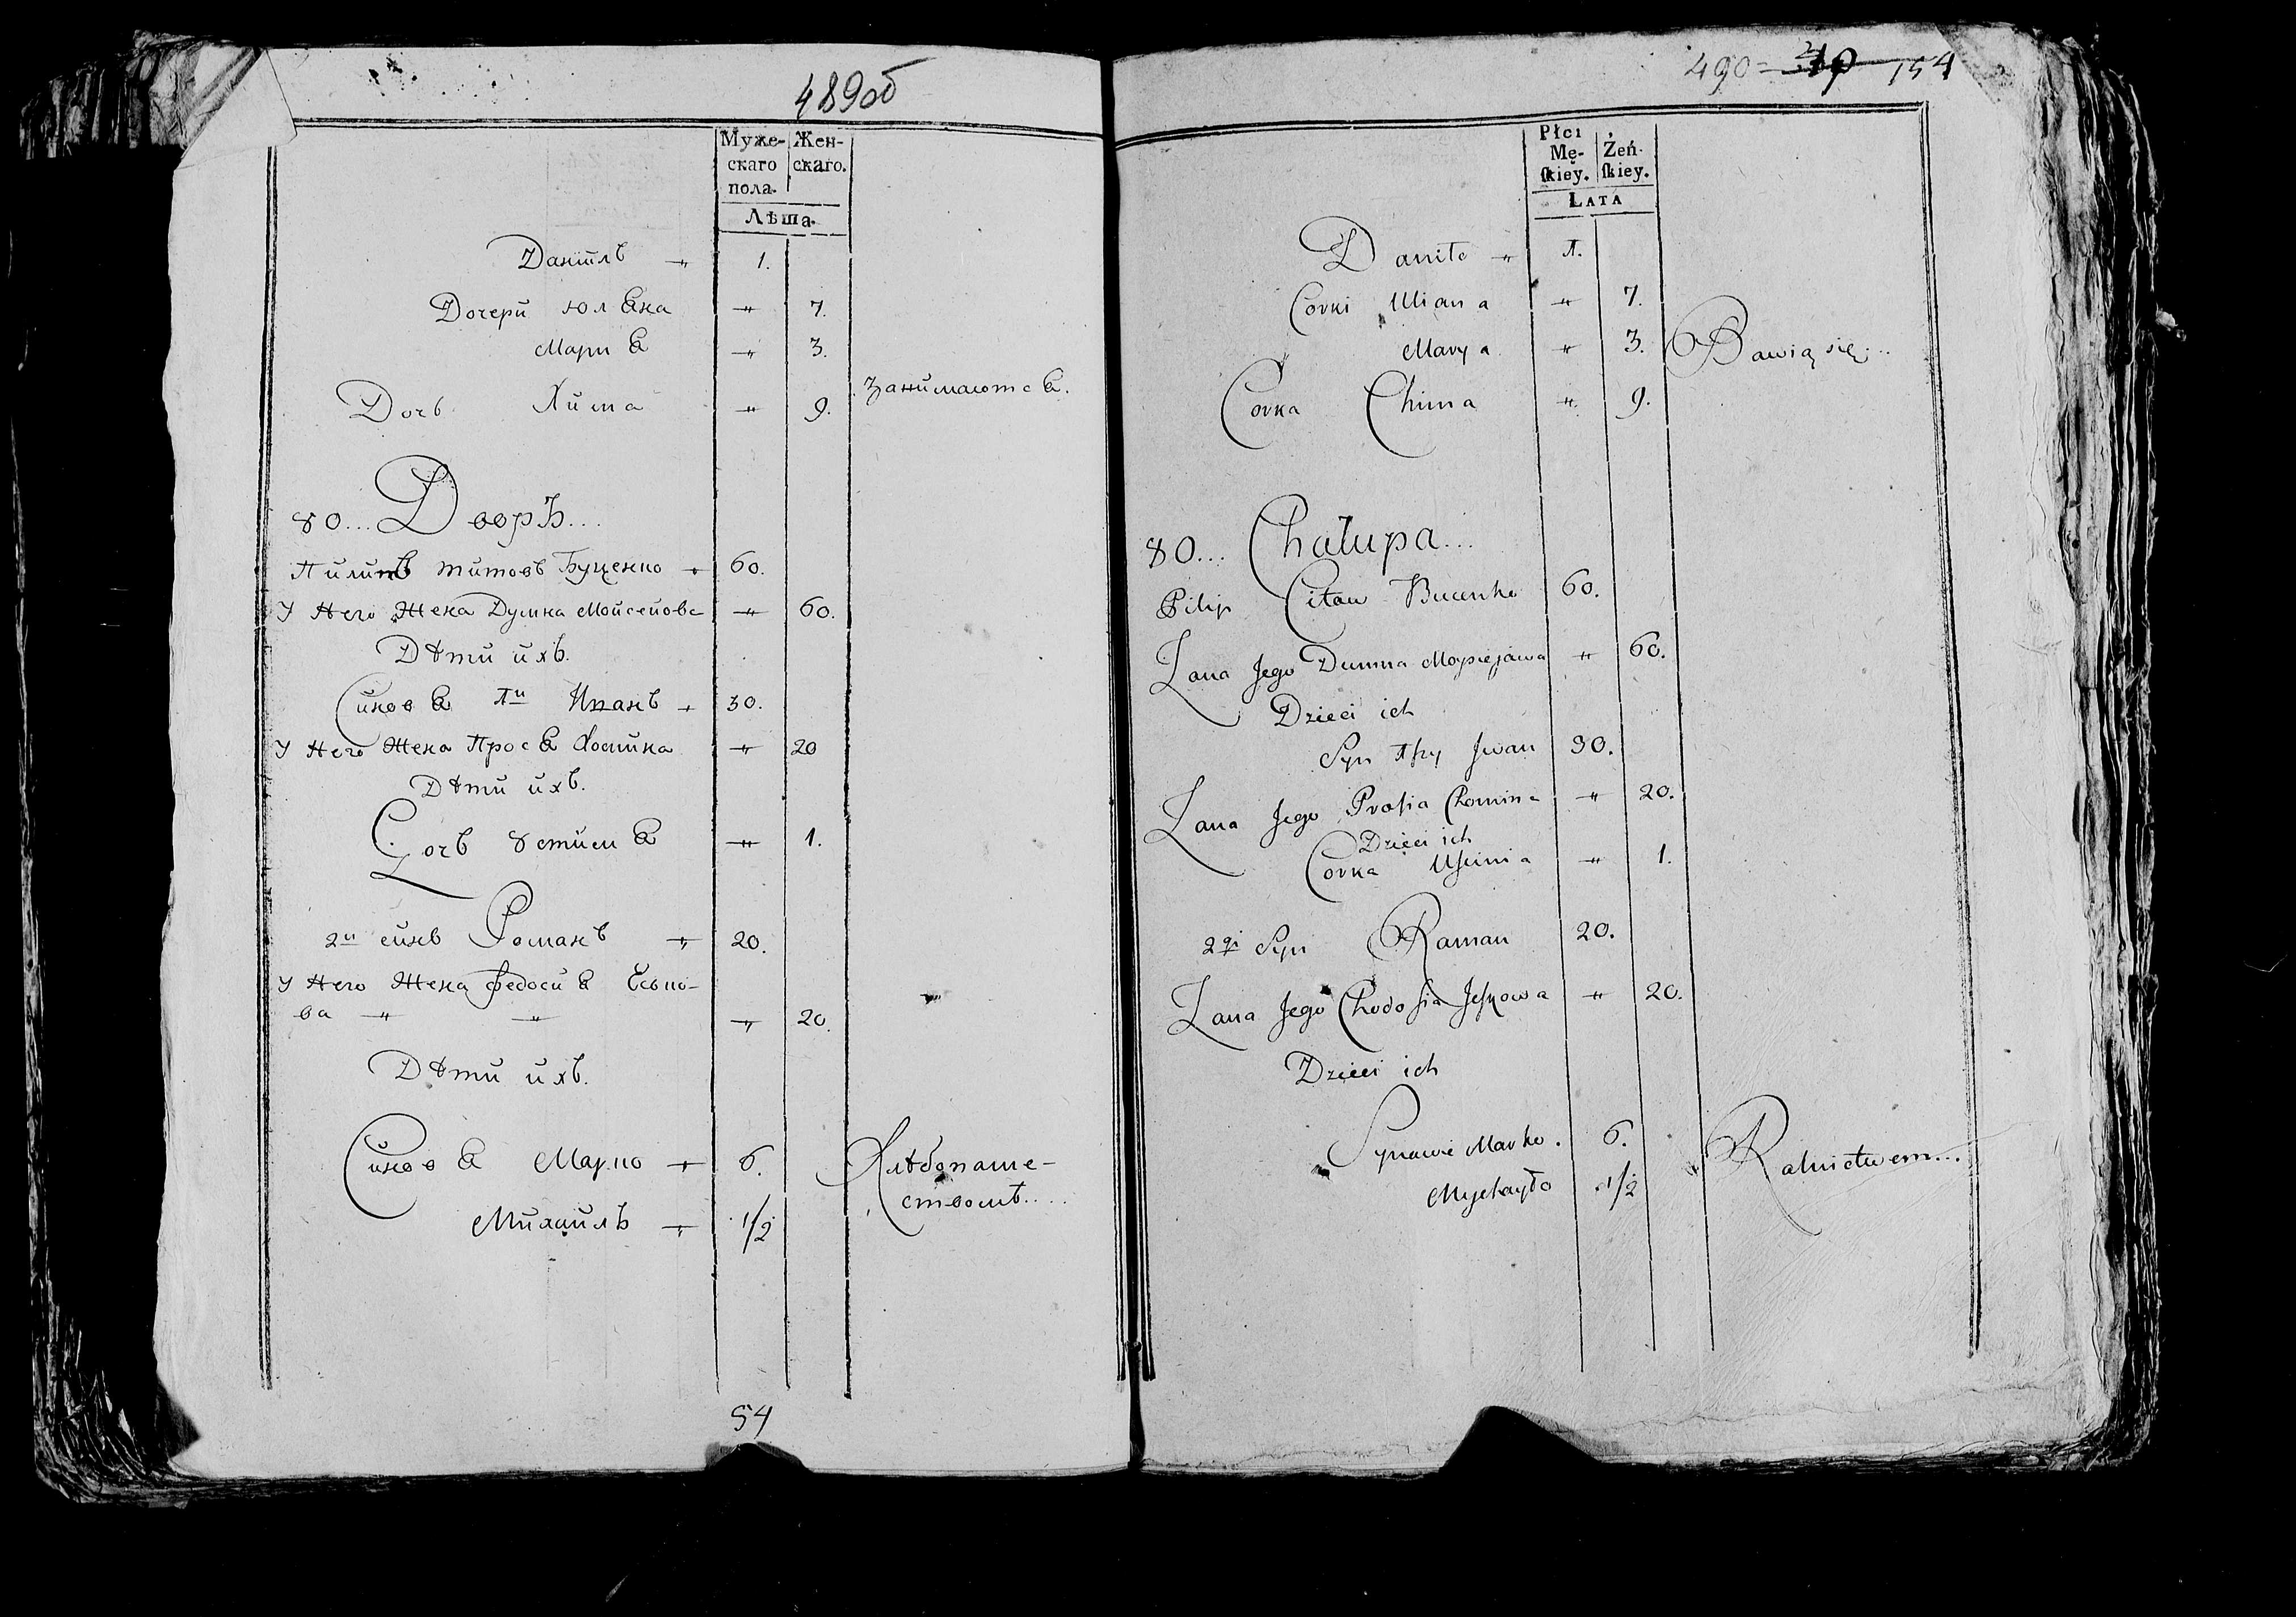 489об
Муже-
скаго
пола.
Жен-
скаго.
Лѣта.
Данилъ „ 1.
Дочери Юляна „ 7.
Мария „ 3.
Занимаются.
Дочь Хима „ 9.
80... Дворъ...
Пилипъ Титовъ Буценко „ 60.
У Него Жена Думна Мойсеиова „ 60.
Дѣти ихъ.
Синовя 1й Иванъ „ 30.
У Него Жена Прося Хомина „ 20
Дѣти ихъ.
Дочь Устимя „ 1.
2й синъ Романъ „ 20.
У Него Жена Федосия Есько-
ва „ „ „ 20.
Дѣти ихъ.
Синовя Марко „ 6.
Хлѣбопаше-
ствомъ....
Михаилъ „ 1/2
54
490 154
Płci
Mę-
ſkiey.
Żeń-
ſkiey.
LATA
Daniło „ 1.
Corki Uliana „ 7.
Marya „ 3. Bawią się...
Corka Chima „ 9.
80... Chałupa...
Pilip Citow Bucenko 60.
Żona Jego Dumna Moysiejowa „ 60.
Dzieci ich
Syn 1ſzy Iwan 30.
Żona Jego Proſia Chomina „ 20.
Dzieci ich
Corka Uſcimia „ 1.
2gi Syn Roman 20.
Żona Jego Chodoſia Jeſkowa „ 20.
Dzieci ich
Synowie Marko. 6.
Rolnictwem...
Mychayło 1/2